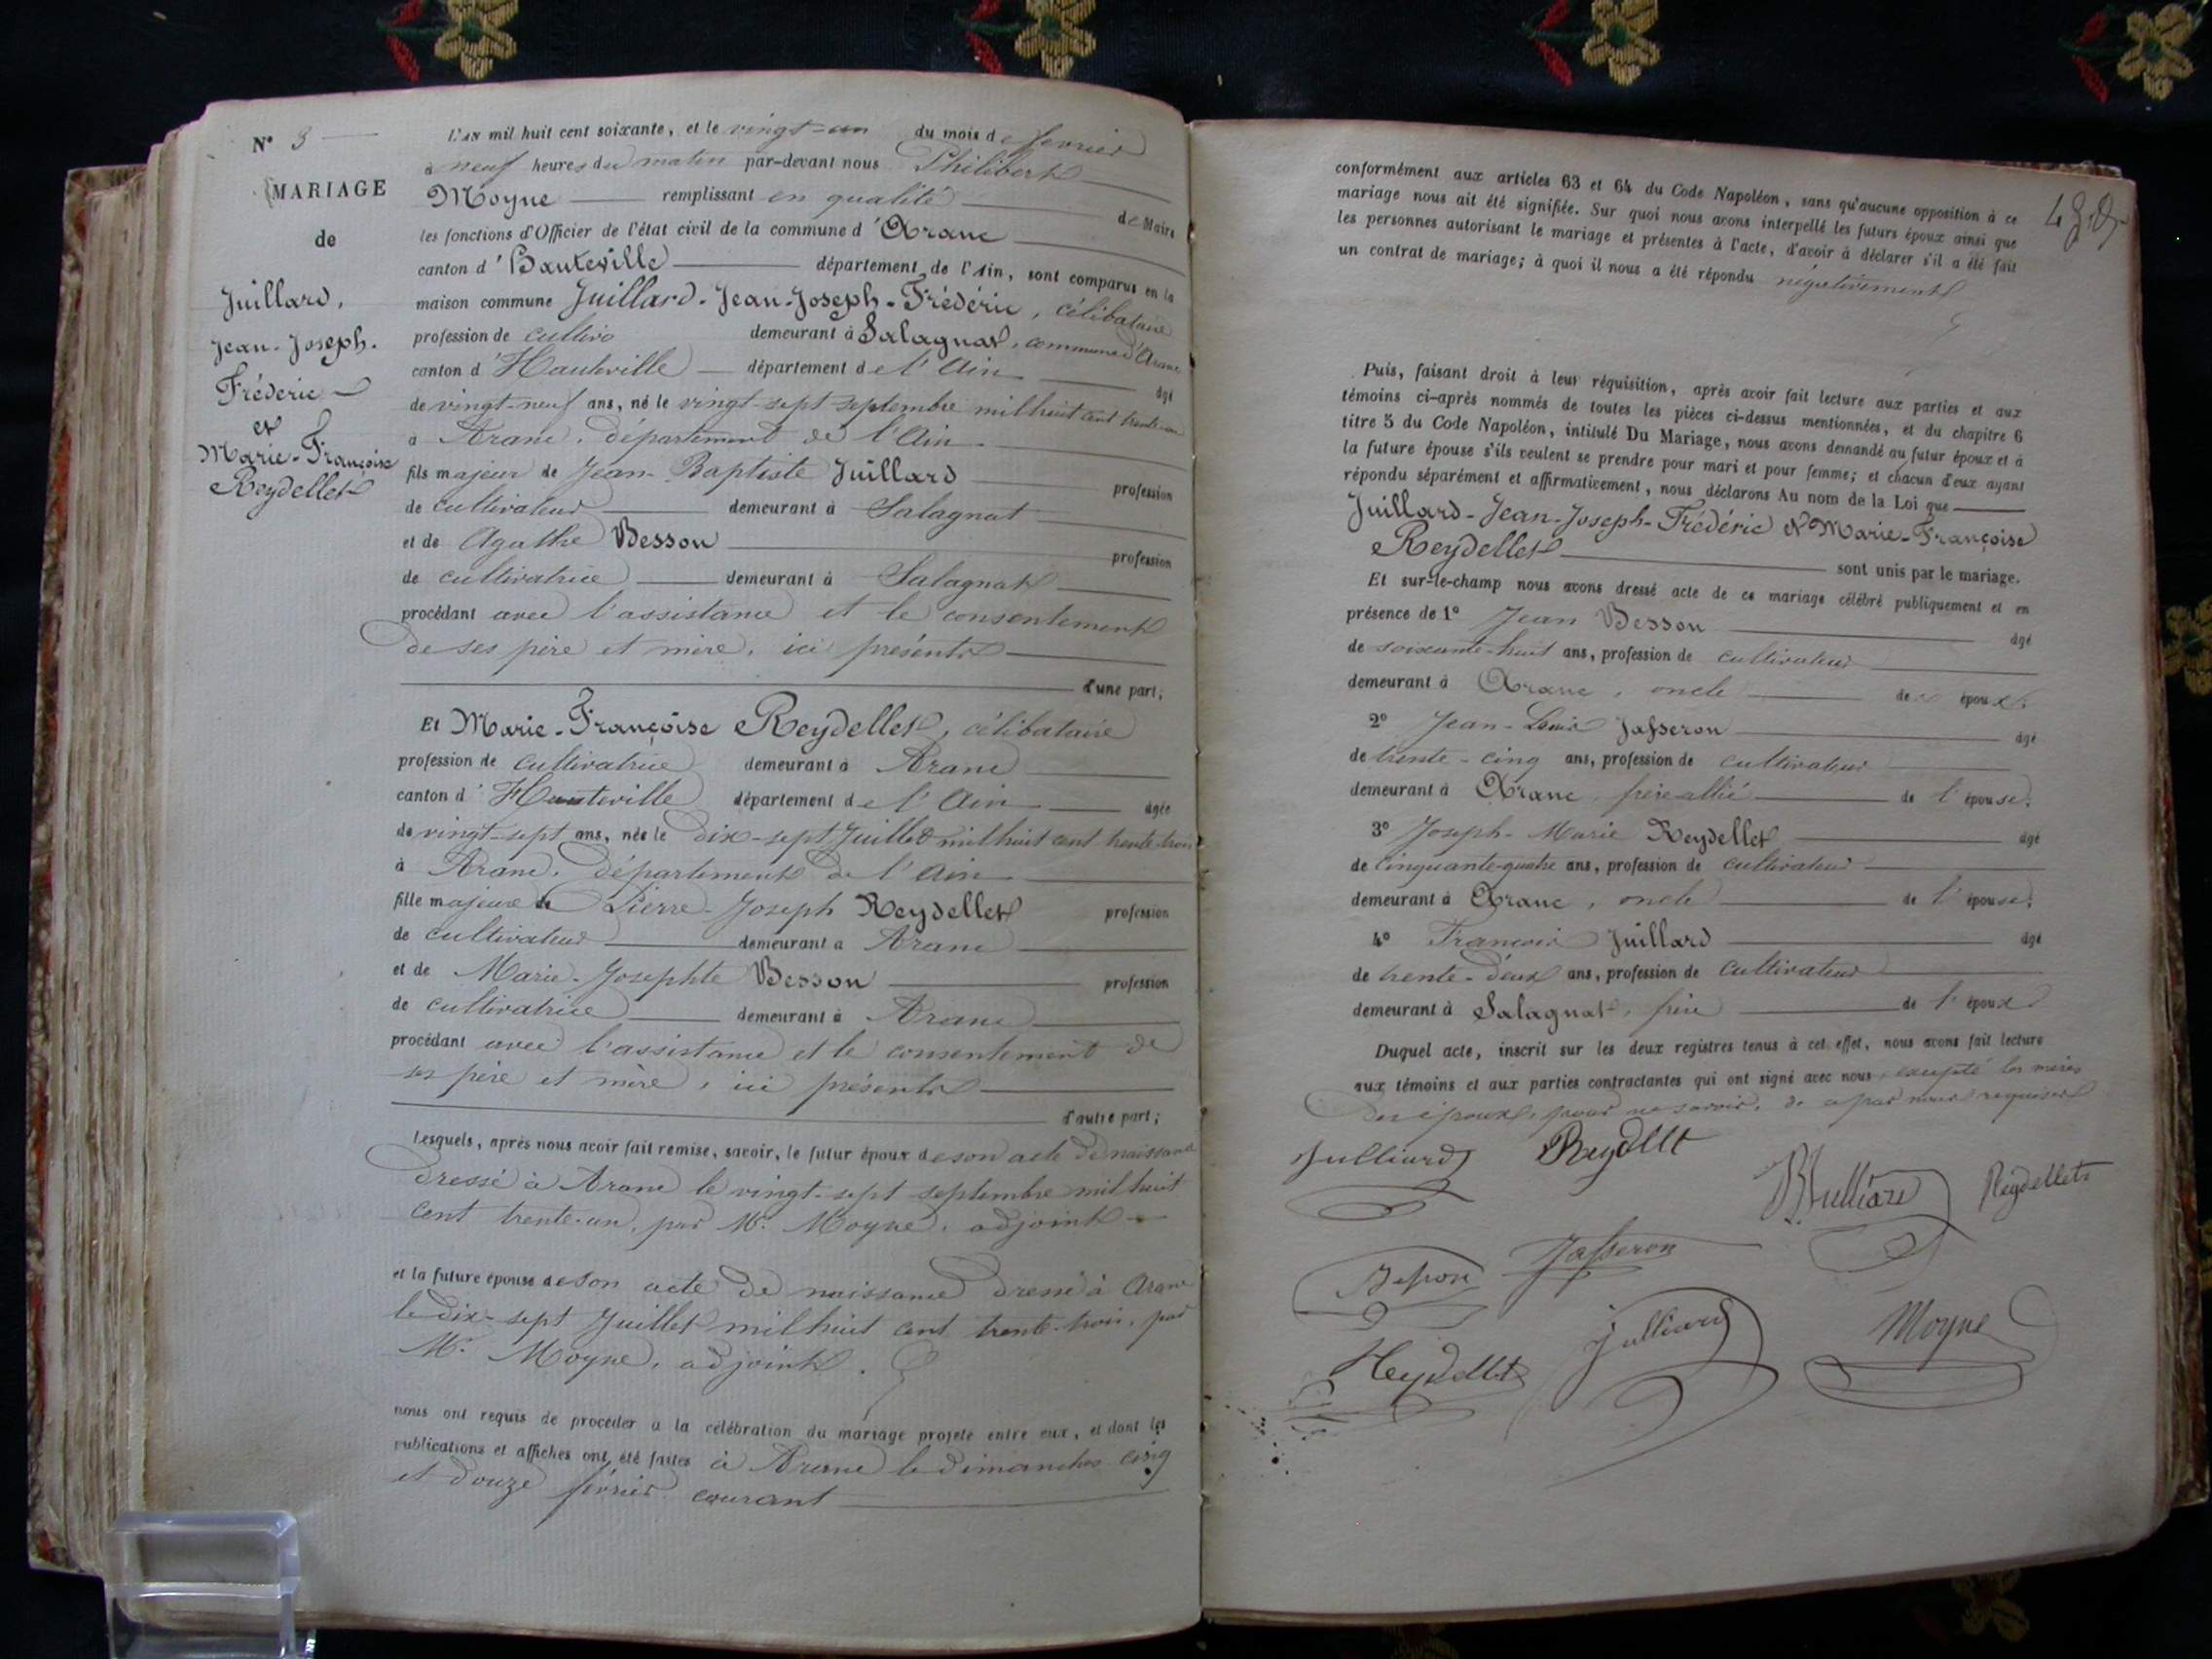 N° 3
MARIAGE
de
Juillard,
Jean-Joseph-
Fréderic
et
Marie-Françoise
Reydellet
L'AN mil huit cent soixante, et le vingt-un du mois de fevrier
à neuf heures du matin par-devant nous Philibert
Moyne remplissant en qualité de Maire
les fonctions d'Officier de l'état civil de la commune d'Aranc
canton d'Hauteville département de l'Ain, sont comparus en la
maison commune Juillard-Jean-Joseph-Frédéric, célibataire
profession de cultivr demeurant à Salagnat, commune d'Aranc
canton d'Hauteville département de l'Ain âgé
de vingt-neuf ans, né le vingt-sept septembre mil huit cent trente-un
à Aranc, département de l'Ain
fils majeur de Jean-Baptiste Juillard profession
de cultivateur demeurant à Salagnat
et de Agathe Besson profession
de cultivatrice demeurant à Salagnat
procédant avec l'assistance et le consentement
de ses père et mère, ici présents
d'une part;
Et Marie-Françoise Reydellet, célibataire
profession de cultivatrice demeurant à Aranc
canton d'Hauteville département de l'Ain âgée
de vingt-sept ans, née le dix-sept Juillet mil huit cent trente-trois
à Aranc, département de l'Ain
fille majeure de Pierre-Joseph Reydellet profession
de cultivateur demeurant à Aranc
et de Marie-Josephte Besson profession
de cultivatrice demeurant à Aranc
procédant avec l'assistance et le consentement de
ses père et mère, ici présents
d'autre part;
Lesquels, après nous avoir fait remise, savoir, le futur époux de son acte de naissance
dressé à Aranc le vingt-sept septembre mil huit
cent trente-un, par Mr. Moyne, adjoint
et la future épouse de son acte de naissance dressé à Aranc
le dix-sept Juillet mil huit cent trente-trois, par
Mr. Moyne, adjoint.
nous ont requis de procéder à la célébration du mariage projeté entre eux, et dont les
publications et affiches ont été faites à Aranc le dimanches cinq
et douze février courant
conformément aux articles 63 et 64 du Code Napoléon, sans qu'aucune opposition à ce
mariage nous ait été signifiée. Sur quoi nous avons interpellé les futurs époux ainsi que
les personnes autorisant le mariage et présentes à l'acte, d'avoir à déclarer s'il a été fait
un contrat de mariage; à quoi il nous a été répondu négativement
Puis, faisant droit à leur réquisition, après avoir fait lecture aux parties et aux
témoins ci-après nommés de toutes les pièces ci-dessus mentionnées, et du chapitre 6
titre 5 du Code Napoléon, intitulé Du Mariage, nous avons demandé au futur époux et à
la future épouse s'ils veulent se prendre pour mari et pour femme; et chacun d'eux ayant
répondu séparément et affirmativement, nous déclarons Au nom de la Loi que
Juillard-Jean-Joseph-Frédéric et Marie-Françoise
Reydellet sont unis par le mariage.
Et sur-le-champ nous avons dressé acte de ce mariage célébré publiquement et en
présence de 1° Jean Besson âgé
de soixante-huit ans, profession de cultivateur
demeurant à Aranc, oncle des époux.
2° Jean-Louis Jasseron âgé
de trente-cinq ans, profession de cultivateur
demeurant à Aranc, frère-allié de l'épouse.
3° Joseph-Marie Reydellet âgé
de cinquante-quatre ans, profession de cultivateur
demeurant à Aranc, oncle de l'épouse.
4° François Juillard âgé
de trente-deux ans, profession de cultivateur
demeurant à Salagnat, frère de l'époux
Duquel acte, inscrit sur les deux registres tenus à cet effet, nous avons fait lecture
aux témoins et aux parties contractantes qui ont signé avec nous, excepté les mères
des époux, pour ne savoir, de ce par nous requises
Julliard Reydellt
Julliard Reydellets
Besson Jasseron
Reydellet Julliard Moyne